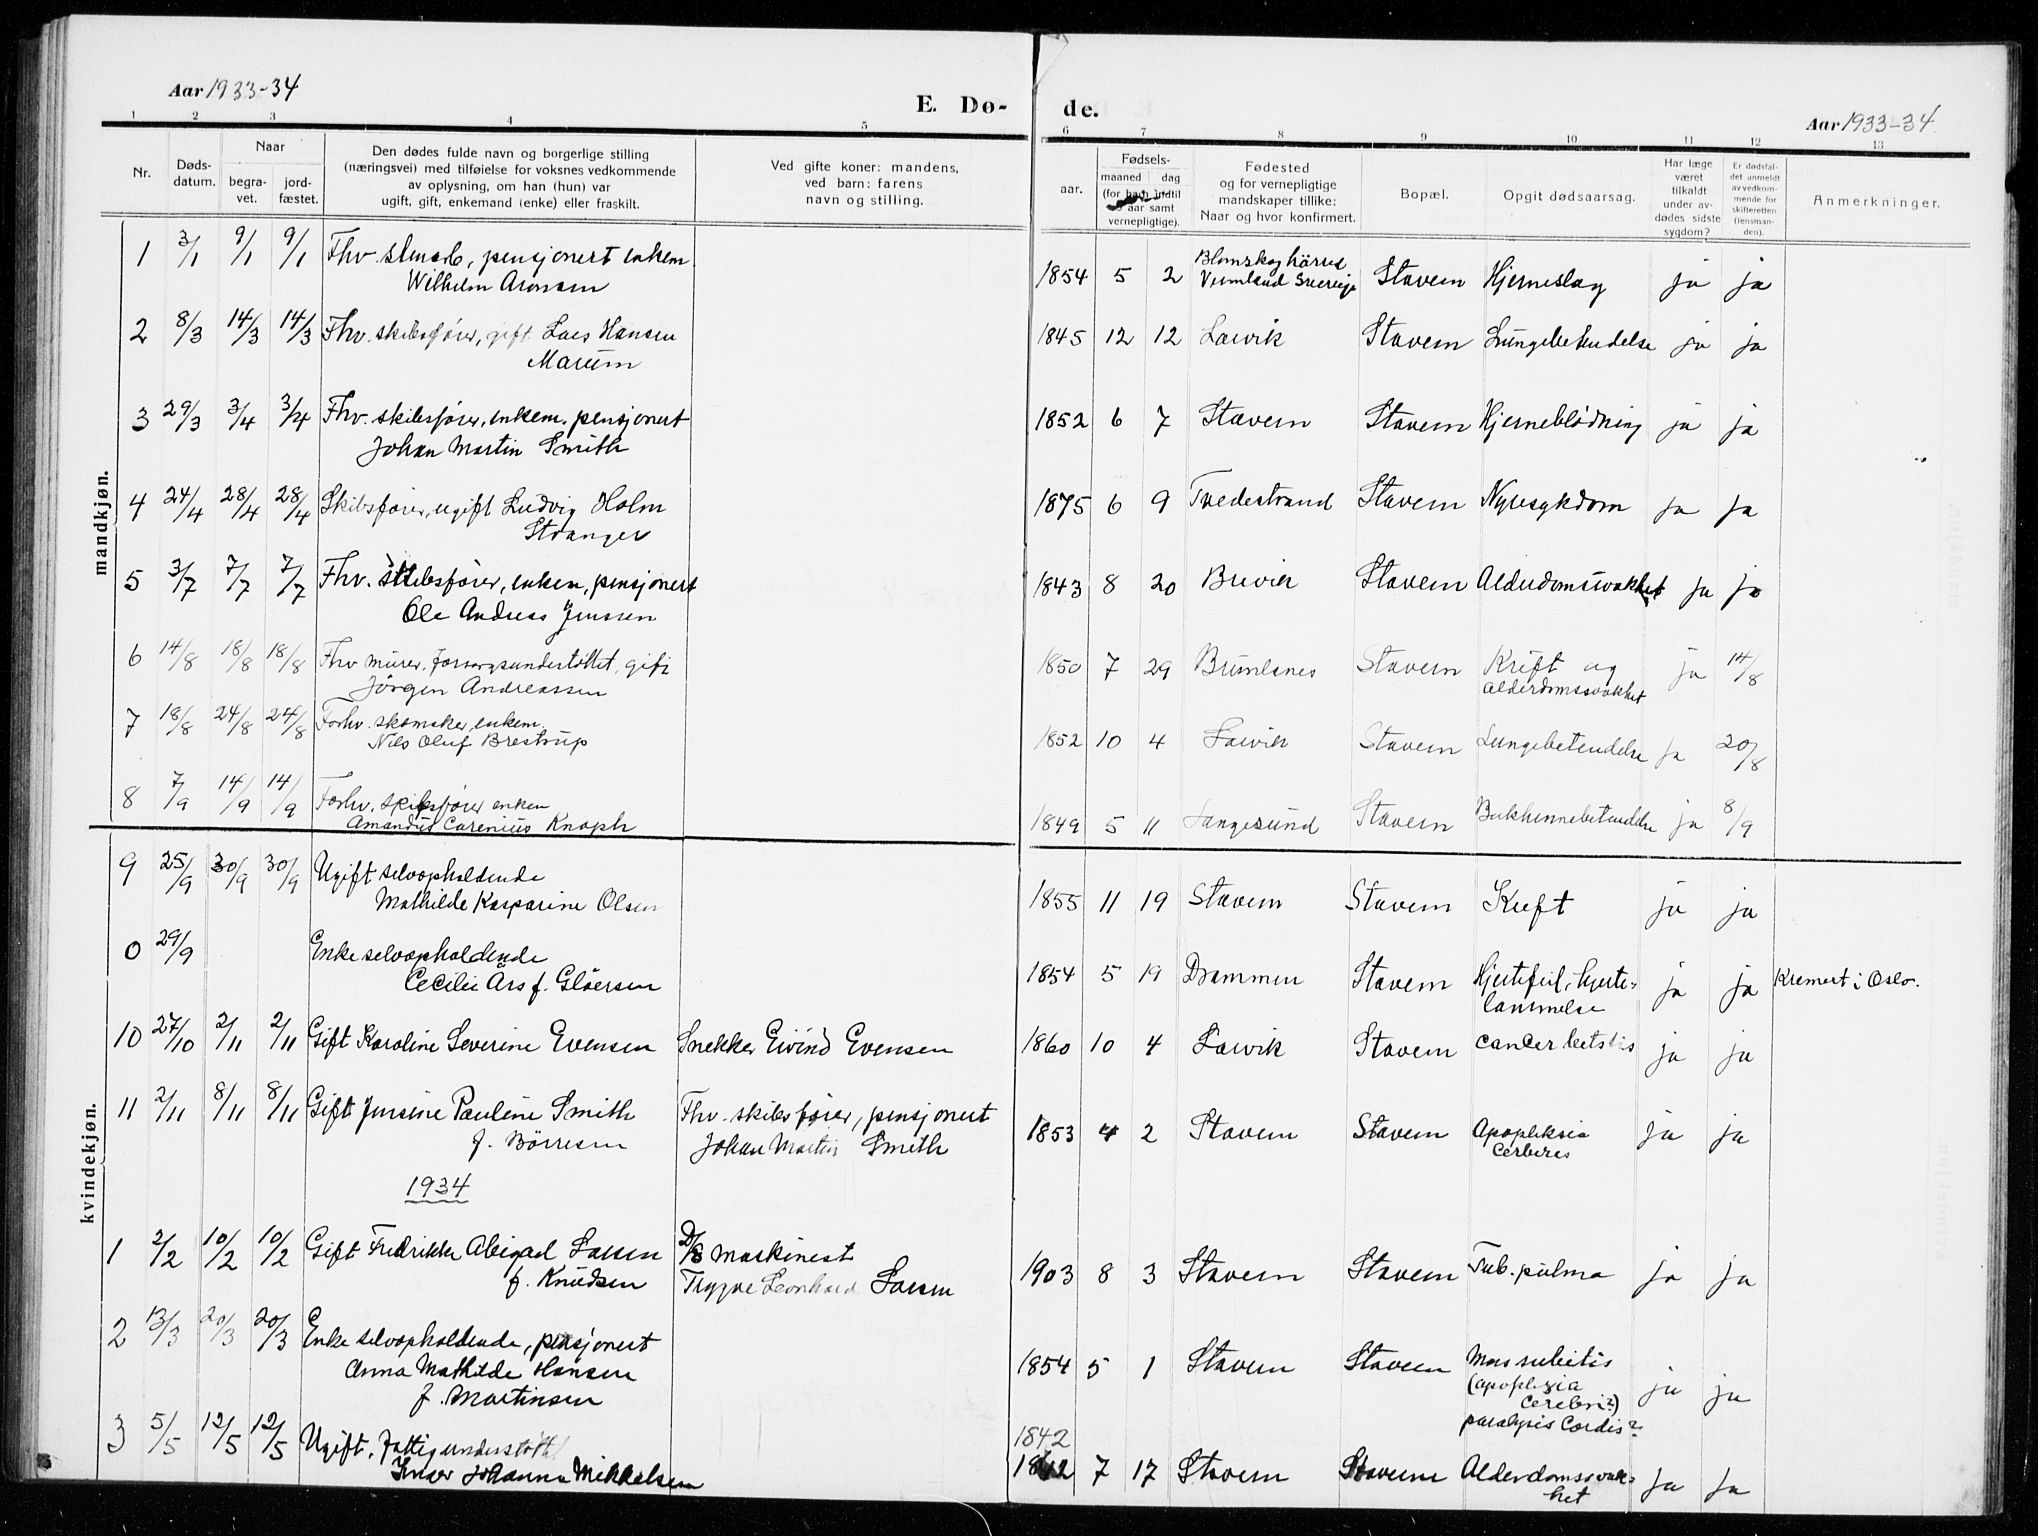 Aar 1933-34
E. Dø-
de.
Aar 1933-34
1 2 3 4 5
6 7 8 9 10 11 12 13
Nr.
Døds-
datum.
Naar
begra-
vet.
jord-
fæstet.
Den dødes fulde navn og borgerlige stilling
(næringsvei) med tilføielse for voksnes vedkommende
av oplysning, om han (hun) var
ugift, gift, enkemand (enke) eller fraskilt.
Ved gifte koner: mandens,
ved barn: farens
navn og stilling.
aar.
Fødsels-
maaned dag
(for barn indtil
aar samt
vernepligtige).
Fødested
og for vernepligtige
mandskaper tillike:
Naar og hvor konfirmert.
Bopæl.
Opgit dødsaarsag.
Har læge
været
tilkaldt
under av-
dødes sidste
sygdom?
Er dødsfal-
det anmeldt
av vedkom-
mende for
skifteretten
(lensman-
den).
Anmerkninger.
mandkjøn.
1 3/1 9/1 9/1 Fhv. pensjonert enkem. 1854 5 2 Stavern Hjerneslag ja ja
Wilhelm Aronsen
Sverige
2 8/3 14/3 14/3 Fhv. skibsfører, gift Lars Hansen 1845 12 12 Larvik Stavern Lungebetendelse ja ja
Marum
3 29/3 3/4 3/4 Fhv. skibsfører, enkem. pensjonert 1852 6 7 Stavern Stavern Hjerneblødning ja ja
Johan Martin Smith
4 24/4 28/4 28/4 Skibsfører, ugift Ludvig Holm 1875 6 9 Tvedestrand Stavern Nyresykdom ja ja
Stranger
5 3/7 7/7 7/7 Fhv. skibsfører, enkem, pensjonert 1843 8 20 Brevik Stavern Alderdomssvakhet ja ja
Ole Andreas Jenssen
6 14/8 18/8 18/8 Fhv murer, forsorgsunderstøttet, gift 1850 7 29 Brunlanes Stavern Kreft og ja 14/8
Jörgen Andreassen alderdomssvakhet
7 18/8 24/8 24/8 Forhv. skomaker, enkem. 1852 10 4 Larvik Stavern Lungebetendelse ja 20/8
Nils Oluf Brestrup
8 7/9 14/9 14/9 Forhv. skibsfører enkem 1849 5 11 Langesund Stavern Bukhinnebetendelse ja 8/9
Amandus Carenius Knoph
kvindekjøn.
9 25/9 30/9 30/9 Ugift selvopholdende 1855 11 19 Stavern Stavern Kreft ja ja
Mathilde Kasparine Olsen
0 29/9 Enke selvopholdende 1854 5 19 Drammen Stavern Hjertefeil, hjerte- ja ja Kremert i Oslo.
Cecilie f. Glöersen lammelse
10 27/10 2/11 2/11 Gift Karoline Severine Evensen Snekker Eivind Evensen 1860 10 4 Larvik Stavern cancer ja ja
11 2/11 8/11 8/11 Gift Jensine Pauline Smith Fhv. skibsfører, pensjonert 1853 4 2 Stavern Stavern Apopleksia ja ja
f. Börresen Johan Martin Smith
1934
1 2/2 10/2 10/2 Gift Fredrikke Abigael Larsen D/S Maskinest 1903 8 3 Stavern Stavern Tub. pulma ja ja
f. Knudsen Trygve Leonhard Larsen
2 13/3 20/3 20/3 Enke selvopholdende, pensjonert 1854 5 1 Stavern Stavern Mors subitis ja ja
Anna Mathilde Hansen (apoplexia
f. Martinsen Cerebri?)
paralysis Cordis?
3 5/5 12/5 12/5 Ugift. Fattigunderstött 1842
1842 7 17 Stavern Stavern Alderdomssvak- ja ja
Johanna Mikkelsen het